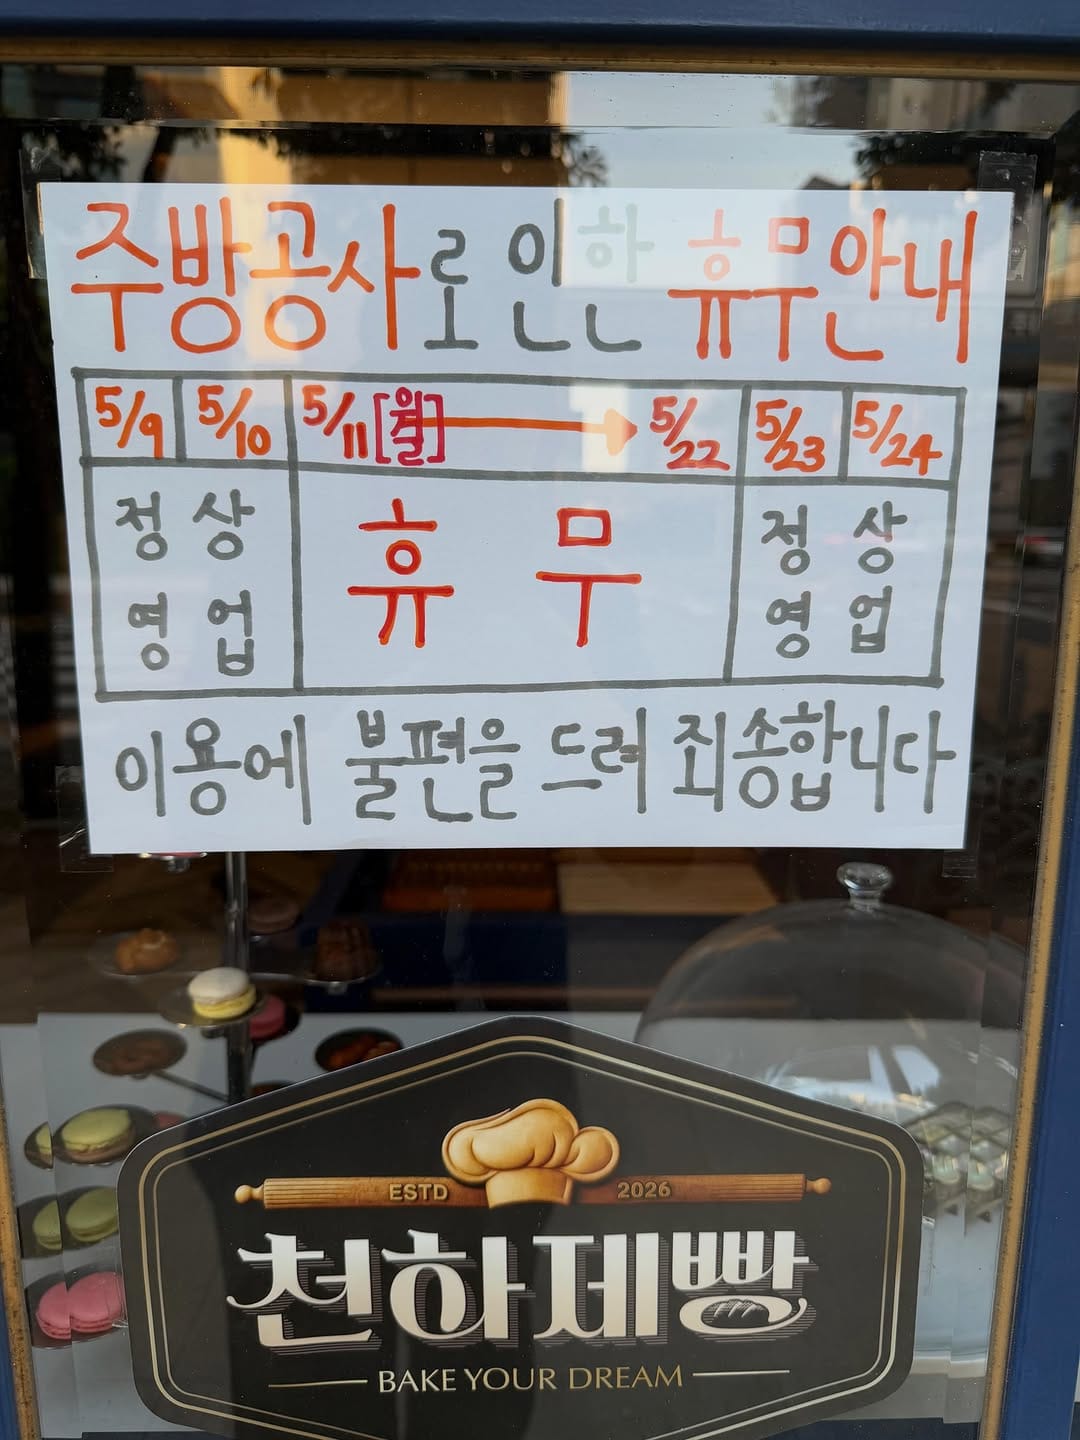 주방공사로 인한 휴무안내
5/9 5/10 5/11[월] → 5/22 5/23 5/24
정상 휴무 정상
영업 영업
이용에 불편을 드려 죄송합니다
ESTD 2026
천하제빵
BAKE YOUR DREAM